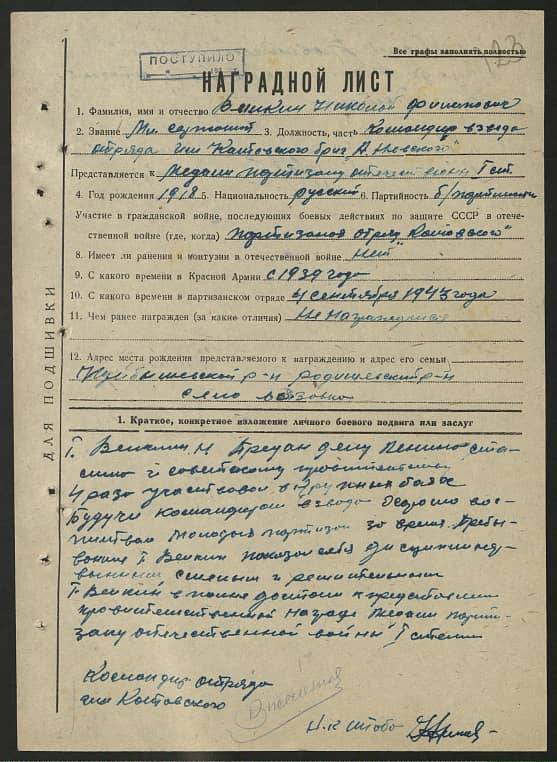 Все графы заполнять полностью
123
ПОСТУПИЛО
НАГРАДНОЙ ЛИСТ
1. Фамилия, имя и отчество Венкин Николай
2. Звание Мл сержант 3. Должность, часть Командир взвода
отряда им Котовского бриг „А. Невского"
Представляется к Медали партизану отечествен I ст.
4. Год рождения 1918 5. Национальность русский 6. Партийность б/партийн
Участие в гражданской войне, последующих боевых действиях по защите СССР в отече-
ственной войне (где, когда) партизанск отряд Котовского"
8. Имеет ли ранения и контузии в отечественной войне нет
9. С какого времени в Красной Армии с 1939 года
10. С какого времени в партизанском отряде 4 сентября 1943 года
11. Чем ранее награжден (за какие отличия) Не награждался
12. Адрес места рождения представляемого к награждению и адрес его семьи
р-н р-н
село
ДЛЯ ПОДШИВКИ
1. Краткое, конкретное изложение личного боевого подвига или заслуг
Т. Венкин Н Предан делу Ленина Ста-
лина и советскому правительству
4 раза участвовал в боях
Будучи командиром взвода Хорошо вос-
питывал молодых партизан за время Пребы-
вания Т Венкин показал себя дисциплиниро-
ванным смелым и решительным
Т Венкин вполне достоин к представлению
правительственной награде медали парти-
зану отечественной войны I степени
Командир отряда
им Котовского
Н-к штаба